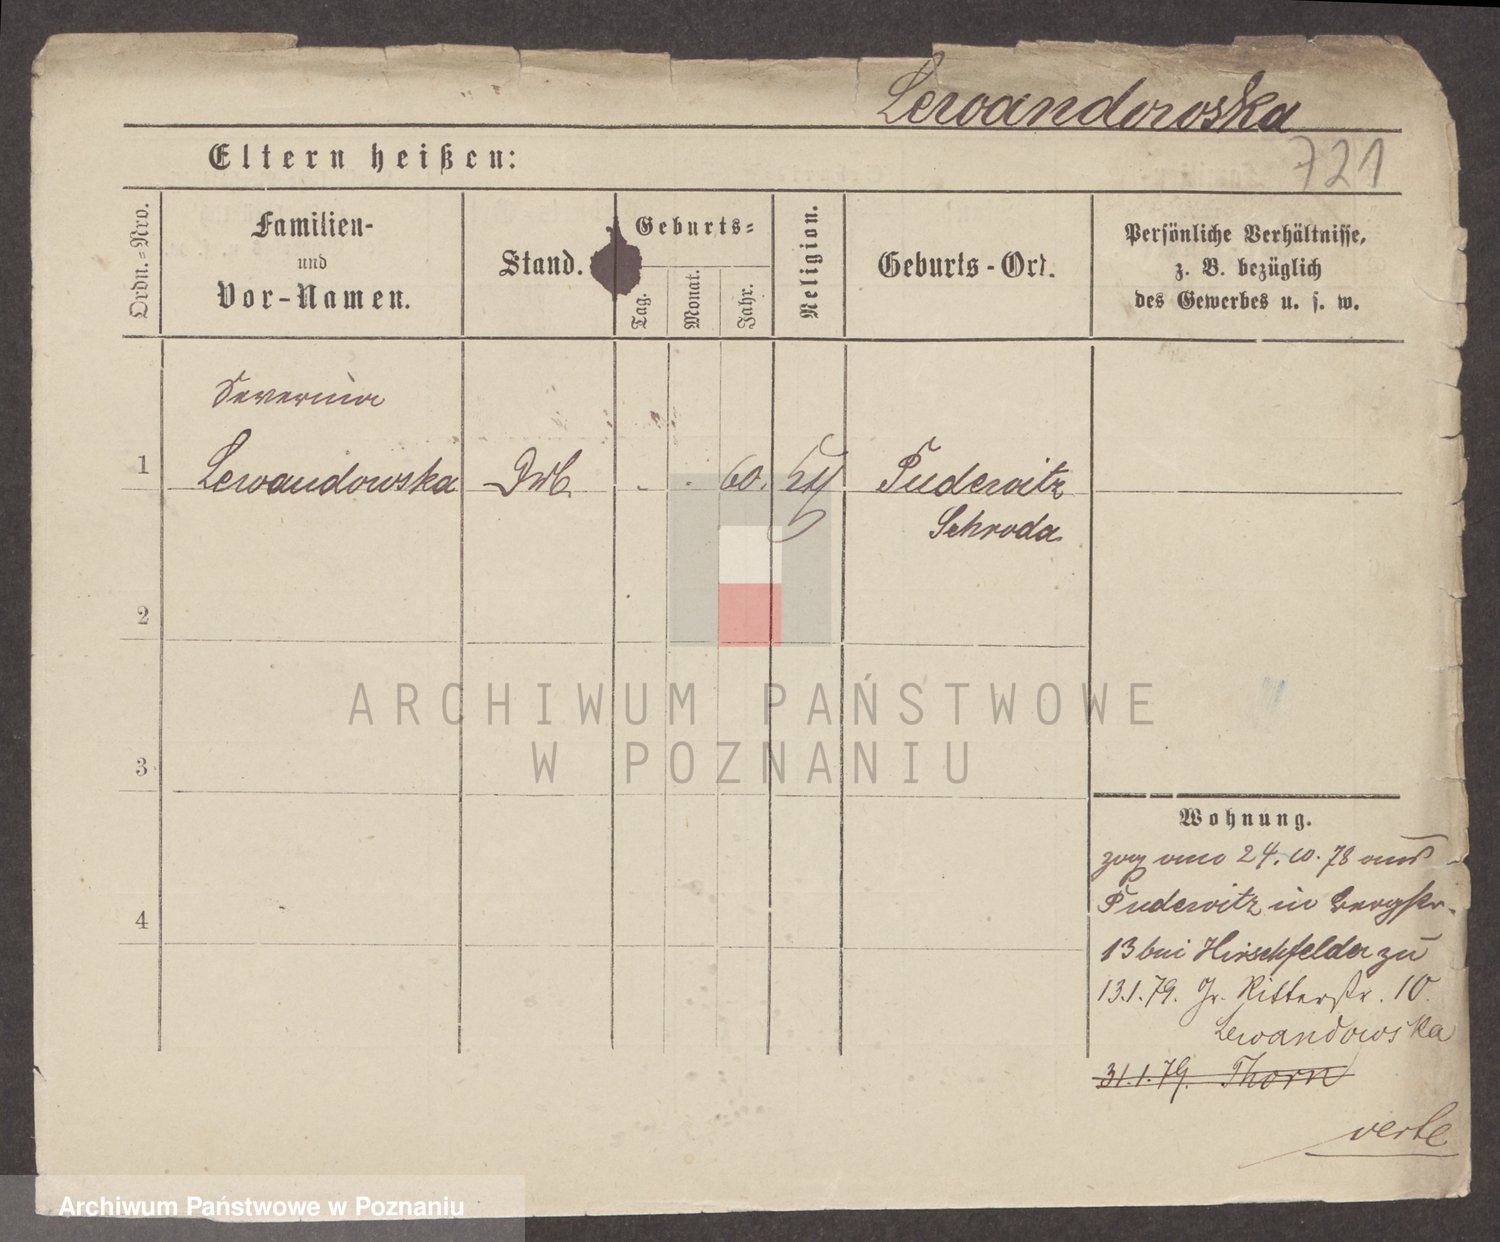 Lewandowska
721
Eltern heißen:
Ordn.=Nro.
Familien-
und
Vor-Namen.
Stand.
Geburts=
Tag.
Monat.
Jahr.
Religion.
Geburts-Ort.
Persönliche Verhältnisse,
z. B. bezüglich
des Gewerbes u. s. w.
Severina
1
Lewandowska
60.
Pudewitz
Schroda
2
3
4
Wohnung.
zog am 24.10.78 aus
Pudewitz in Bergstr.
13 bei Hirschfelder zu
13.1.79. Gr. Ritterstr. 10.
Lewandowska
31.1.79. Thorn
verte
ARCHIWUM PAŃSTWOWE
W POZNANIU
Archiwum Państwowe w Poznaniu